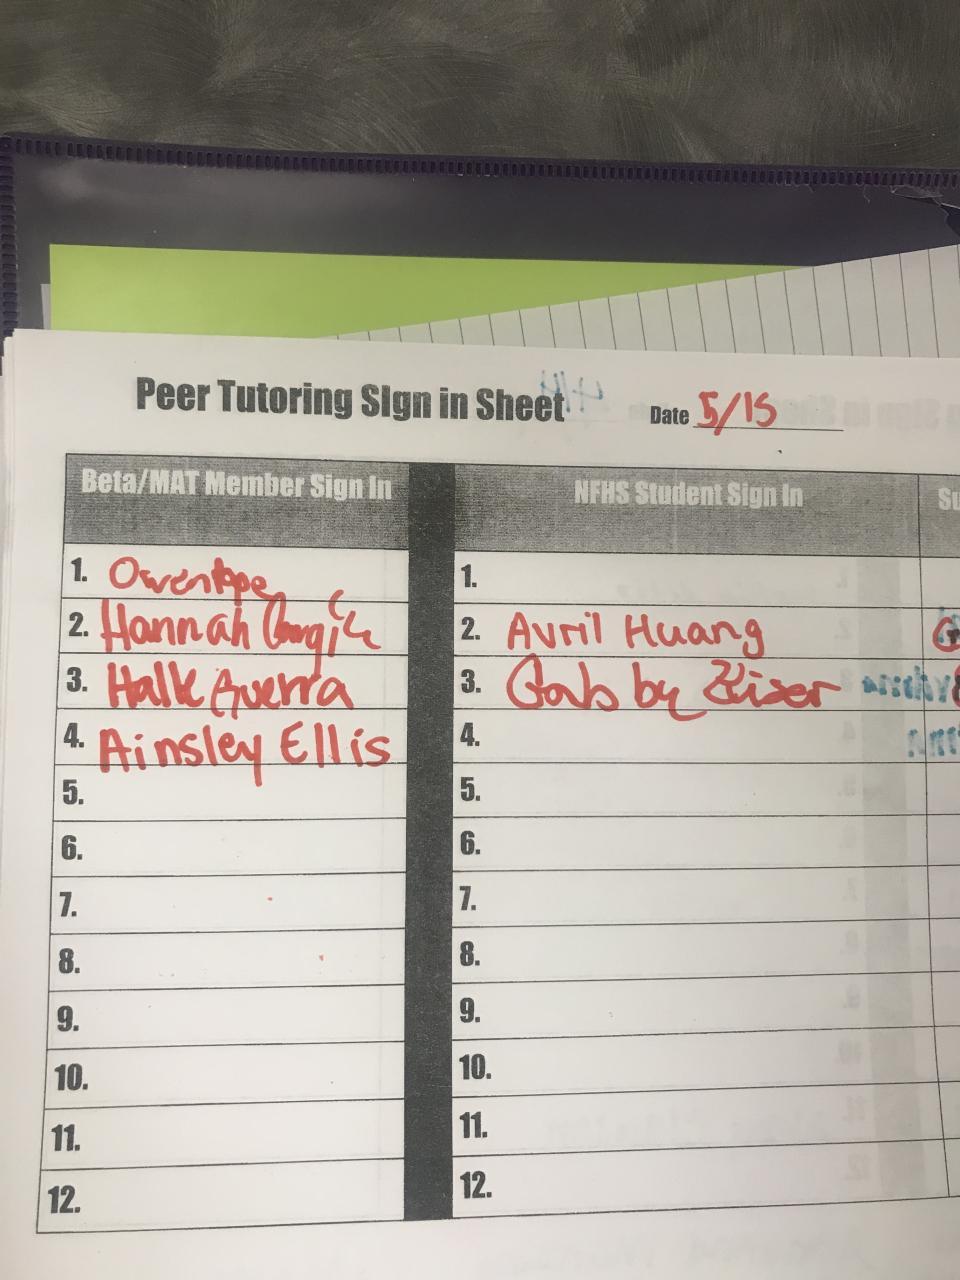 Peer Tutoring Sign in Sheet Date 5/15
Beta/MAT Member Sign In NFHS Student Sign In Su
1. Owen Pope 1.
2. Hannah 2. Avril Huang G
3. Halle Guerra 3. Gabby Kiser
4. Ainsley Ellis 4.
5. 5.
6. 6.
7. 7.
8. 8.
9. 9.
10. 10.
11. 11.
12. 12.